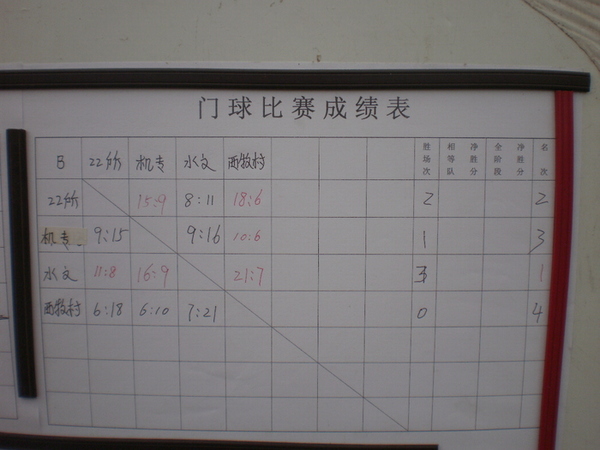 门球比赛成绩表
B 22所 机专 水文 西牧村 胜场次 相等队 净胜分 全阶段 净胜分 名次
22所 15:9 8:11 18:6 2 2
机专 9:15 9:16 10:6 1 3
水文 11:8 16:9 21:7 3 1
西牧村 6:18 6:10 7:21 0 4